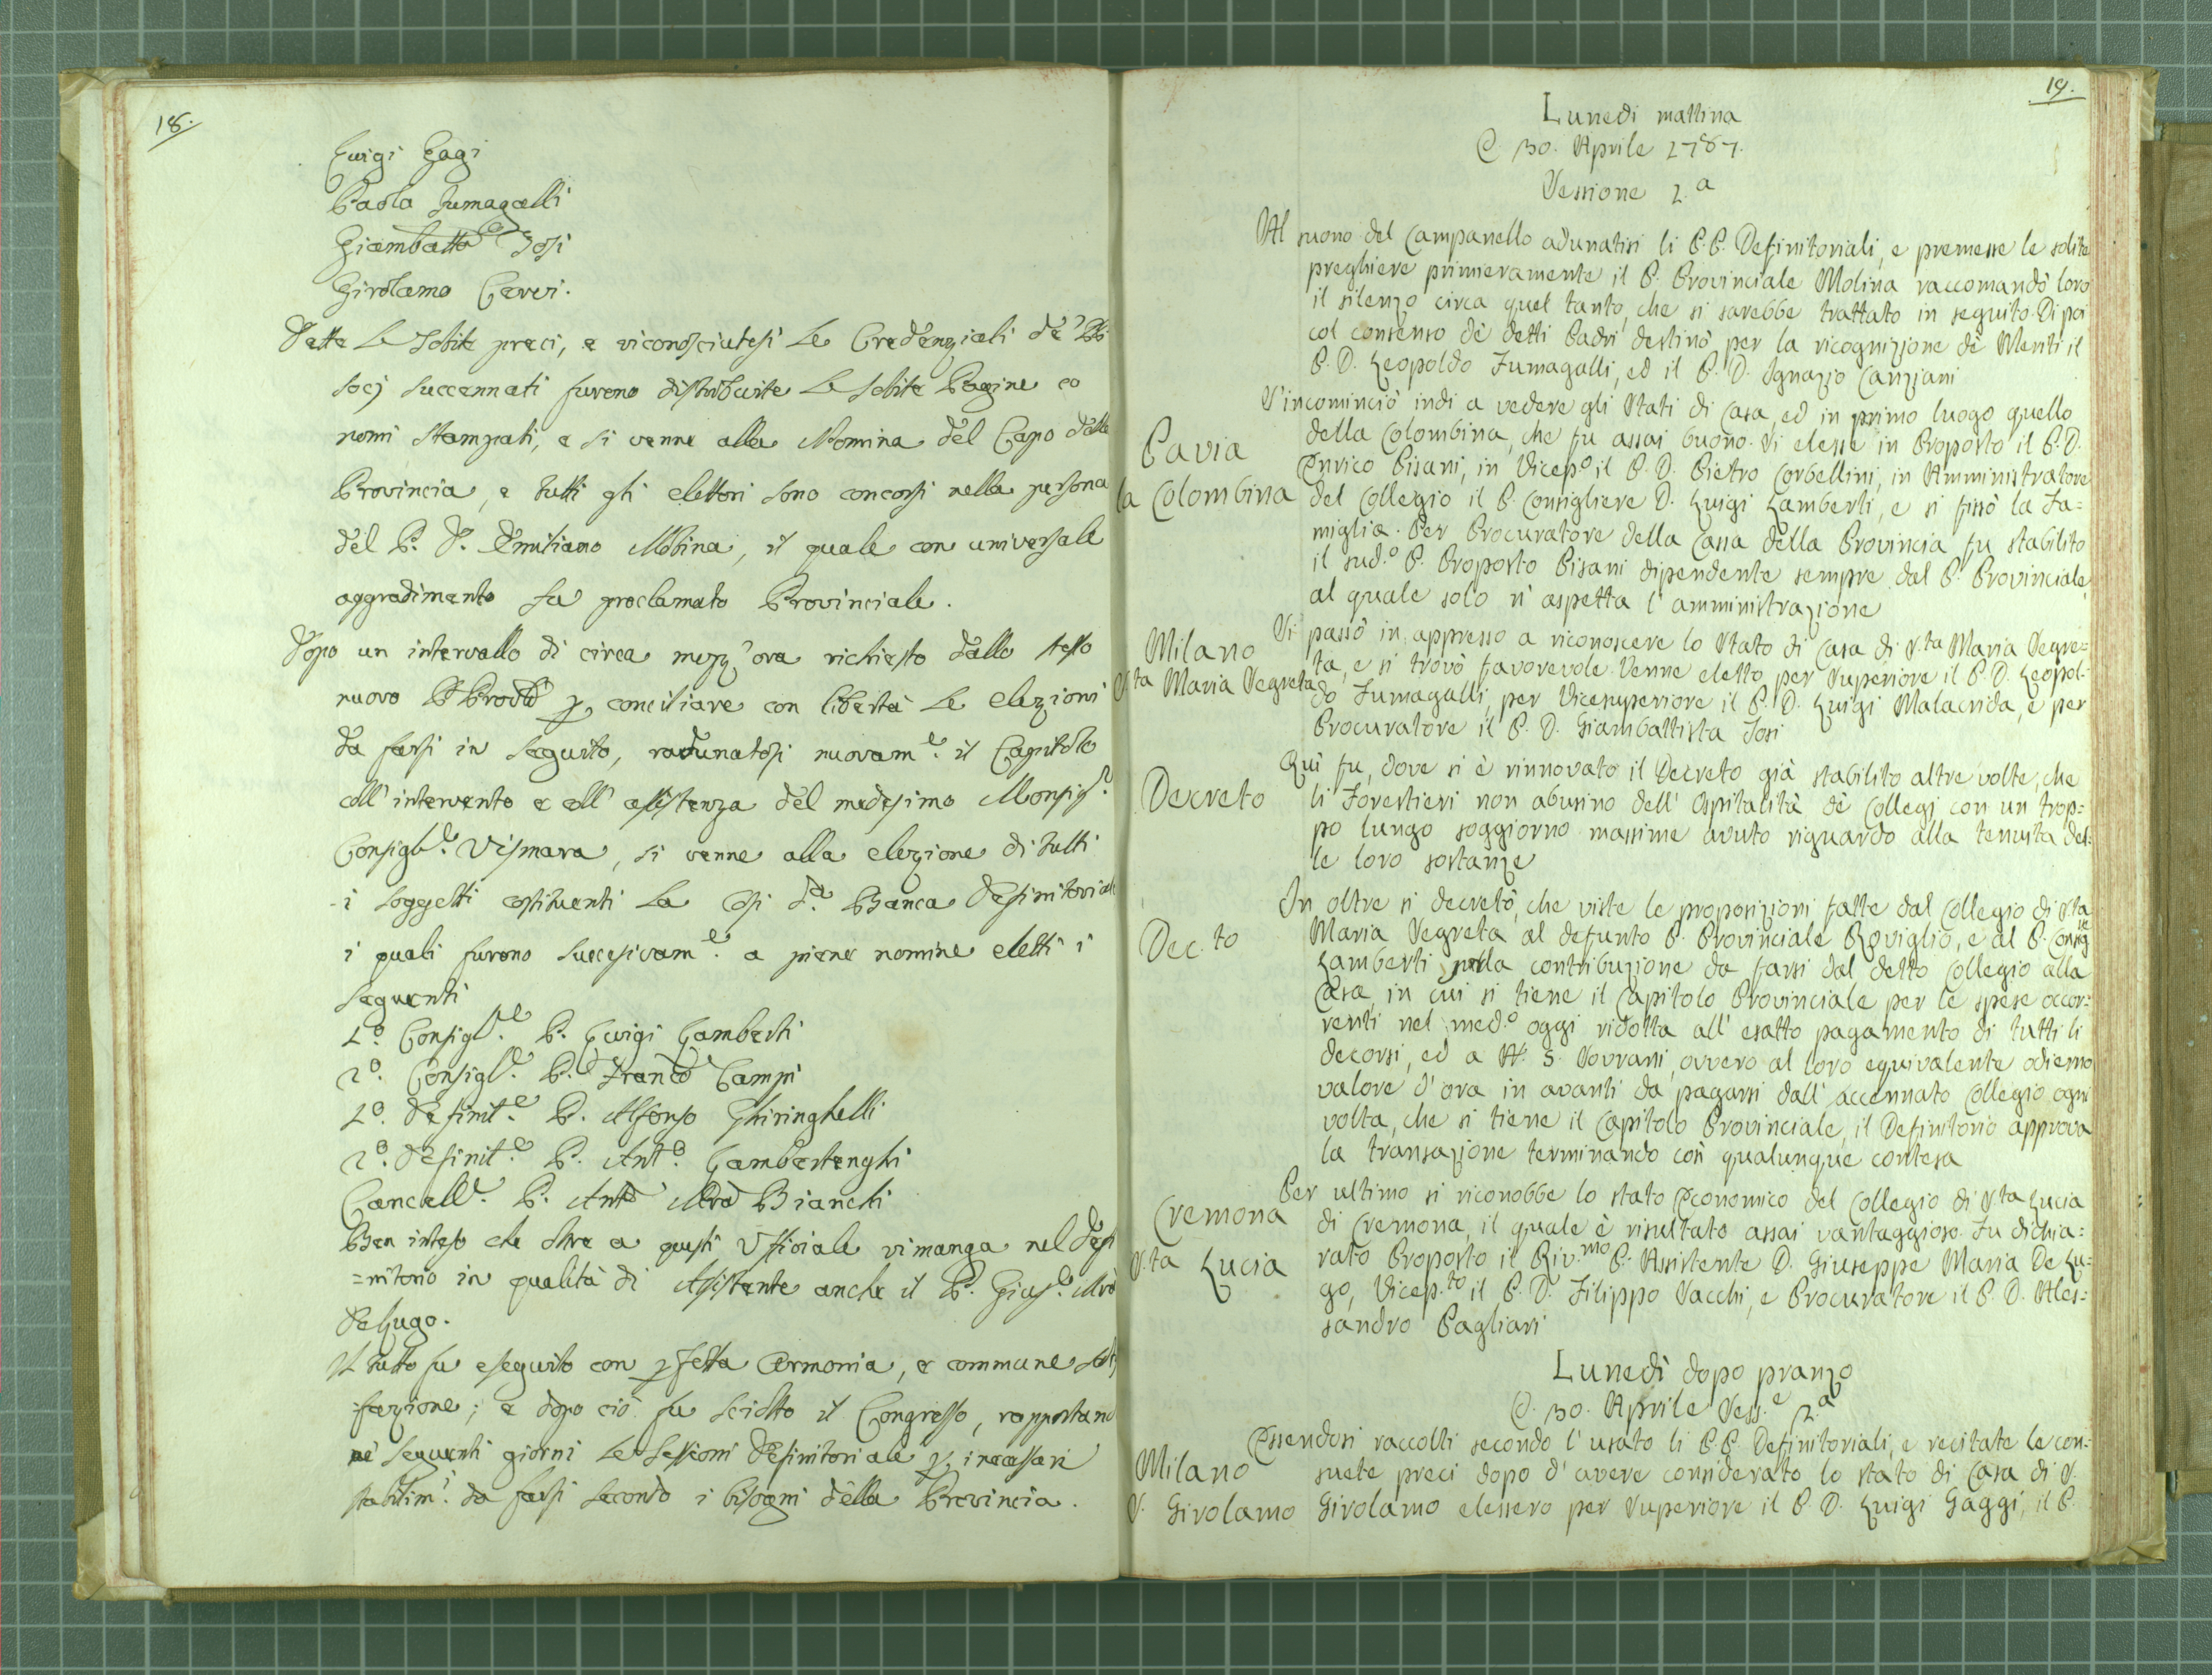 18.
Luigi Gagi
Paolo Fumagalli
Giambatta Josi
Girolamo Cervi.
Dette le solite preci, e riconosciutesi le Credenziali de' PP.
socj succennati furono distribuite le solite Pagine co
nomi stampati, e si venne alla Nomina del Capo della
Provincia, e tutti gli elettori sono concorsi nella persona
del P. D. Emiliano Molina, il quale con universale
aggradimento fu proclamato Provinciale.
Dopo un intervallo di circa mezz'ora richiesto dallo stesso
nuovo P. Provle per conciliare con libertà le elezioni
da farsi in seguito, radunatosi nuovam.e il Capitolo
coll'intervento e coll'assistenza del medesimo Monsig.r
Consigl.e Vismara, si venne alla elezione di tutti
i soggetti costituenti la così d.a Banca Definitoriale
i quali furono succesivam.e a piene nomine eletti i
seguenti
1.o Consigl.e P. Luigi Lamberti
2.o Consigl.e P. Franco Campi
1.o Definit.e P. Alfonso Ghiringhelli
2.o Definit.e P. Ant.o Lambertenghi
Cancell.e P. Anto Mra Bianchi
Ben inteso che oltre a questi Ufficiali rimanga nel Defi
=nitorio in qualità di Assistente anche il P. Gius.e Mra
DeLugo.
Il tutto fu eseguito con perfetta armonia, e commune sodis
fazione; e dopo ciò fu sciolto il Congresso, rapportand
ne' seguenti giorni le Sessioni Definitoriali per i necessari
stabilim.i da farsi secondo i bisogni della Provincia.
19.
Lunedì mattina
30. Aprile 1787.
Sessione 1.a
Al suono del Campanello adunatisi li P.P. Definitoriali, e premesse le solite
preghiere primieramente il P. Provinciale Molina raccomandò loro
il silenzo circa quel tanto, che si sarebbe trattato in seguito. Di poi
col consenso dè detti Padri destinò per la ricognizione dè Meriti il
P. D. Leopoldo Fumagalli, ed il P. D. Ignazio Canziani
S'incominciò indi a vedere gli Stati di Casa, ed in primo luogo quello
Pavia
la Colombina
della Colombina, che fu assai buono. Si elesse in Proposto il P. D.
Enrico Pisani, in Vicep.o il P. D. Pietro Corbellini, in Amministratore
del Collegio il P. Consigliere D. Luigi Lamberti, e si fissò la Fa=
miglia. Per Procuratore della Cassa della Provincia fu stabilito
il sud.o P. Proposto Pisani dipendente sempre dal P. Provinciale,
al quale solo s'aspetta l'amministrazione
Milano
S.ta Maria Segreta
Si passò in appresso a riconoscere lo Stato di Casa di S.ta Maria Segre=
ta, e si trovò favorevole. Venne eletto per Superiore il P. D. Leopol=
do Fumagalli, per Vicesuperiore il P. D. Luigi Malacrida, e per
Procuratore il P. D. Giambattista Josi
Decreto
Quì fu, dove si è rinnovato il Decreto già stabilito altre volte, che
li Forestieri non abusino dell'Ospitalità dè Collegj con un trop=
po lungo soggiorno massime avuto riguardo alla tenuità del=
le loro sostanze
Dec.to
In oltre si decretò, che viste le proposizioni fatte dal Collegio di S.ta
Maria Segreta al defunto P. Provinciale Roviglio, e al P. Consig.re
Lamberti sulla contribuzione da farsi dal detto Collegio alla
Casa, in cui si tiene il Capitolo Provinciale per le spese occor=
renti nel med.o oggi ridotta all'esatto pagamento di tutti li
decorsi, ed a N. 3. Sovrani, ovvero al loro equivalente odierno
valore d'ora in avanti da pagarsi dall'accennato Collegio ogni
volta, che si tiene il Capitolo Provinciale, il Definitorio approva
la transazione terminando così qualunque contesa
Cremona
S.ta Lucia
Per ultimo si riconobbe lo stato Economico del Collegio di S.ta Lucia
di Cremona, il quale è risultato assai vantaggioso. Fu dichia=
rato Proposto il Riv.mo P. Assistente D. Giuseppe Maria De Lu=
go, Vicep.to il P. D. Filippo Sacchi, e Procuratore il P. D. Ales=
sandro Pagliari
Lunedì dopo pranzo
30. Aprile Sess.e 2.a
Milano
S. Girolamo
Essendosi raccolti secondo l'usato li P.P. Definitoriali, e recitate le con=
suete preci dopo d'avere considerato lo stato di Casa di S.
Girolamo elessero per Superiore il P. D. Luigi Gaggi, il P.